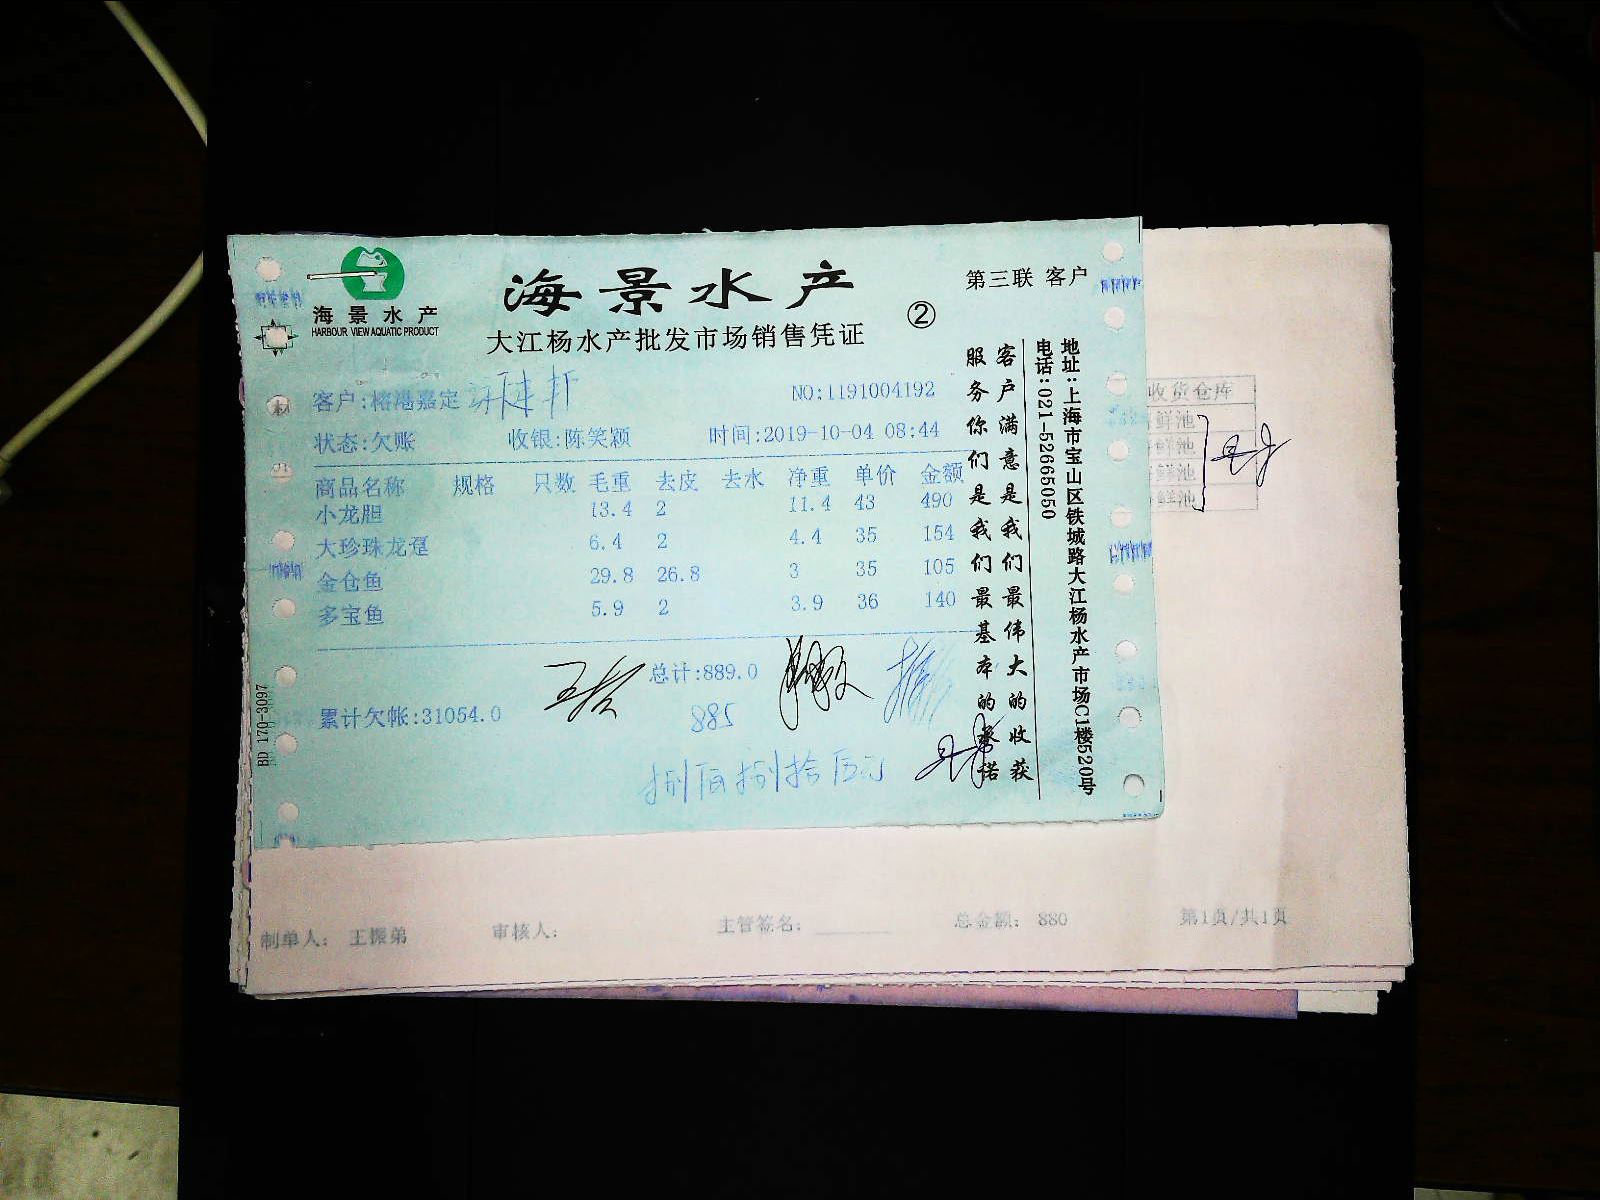 海景水产
HARBOUR VIEW AQUATIC PRODUCT
海景水产
大江杨水产批发市场销售凭证
②
第三联 客户
客户:榕港嘉定
NO:1191004192
状态:欠账 收银:陈笑颖 时间:2019-10-04 08:44
商品名称 规格 只数 毛重 去皮 去水 净重 单价 金额
小龙胆 13.4 2 11.4 43 490
大珍珠龙趸 6.4 2 4.4 35 154
金仓鱼 29.8 26.8 3 35 105
多宝鱼 5.9 2 3.9 36 140
总计:889.0
累计欠帐:31054.0
885
捌佰捌拾伍元
客户满意是我们最伟大的收获
服务你们是我们最基本的承诺
地址:上海市宝山区铁城路大江杨水产市场C1楼520号
电话:021-52665050
BD 170-3097
收货仓库
鲜池
鲜池
鲜池
鲜池
制单人: 王振弟 审核人: 主管签名: 总金额: 880 第1页/共1页